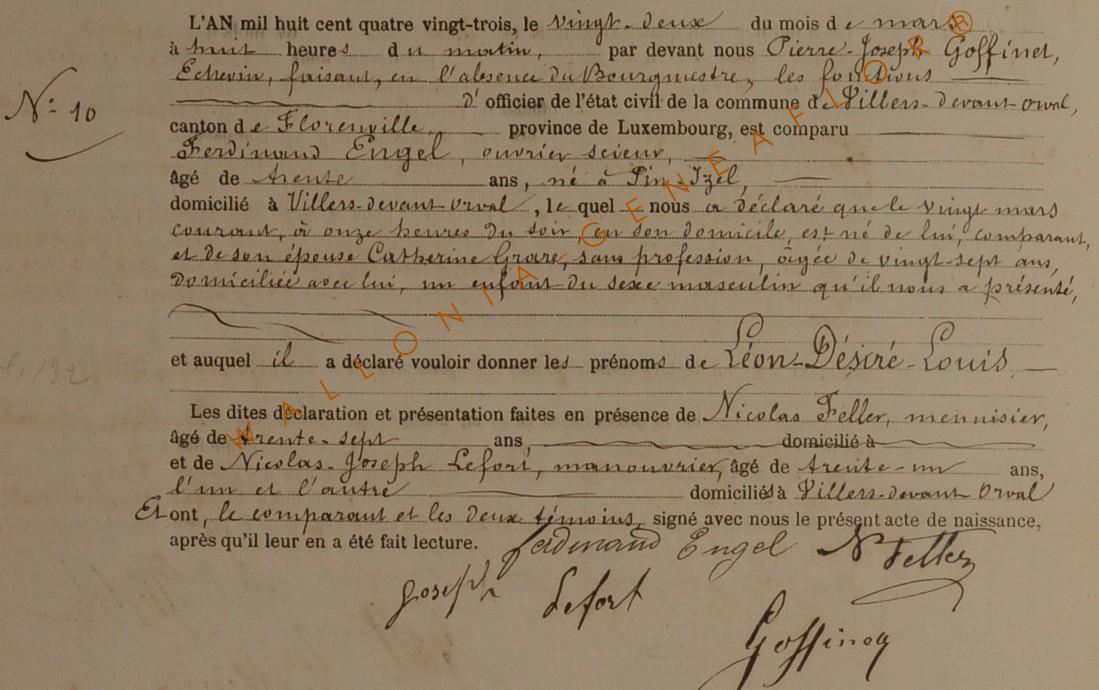 L'AN mil huit cent quatre vingt-trois, le vingt-deux du mois de mars
à huit heures du matin, par devant nous Pierre-Joseph Goffinet,
Echevin, faisant, en l'absence du Bourgmestre, les fonctions
N: 10
d'officier de l'état civil de la commune de Villers-devant-Orval,
canton de Florenville, province de Luxembourg, est comparu
Ferdinand Engel, ouvrier scieur,
âgé de trente ans, né à Pin-Izel,
domicilié à Villers-devant-Orval, lequel nous a déclaré que le vingt mars
courant, à onze heures du soir, en son domicile, est né de lui, comparant,
et de son épouse Catherine, sans profession, âgée de vingt-sept ans,
domiciliée avec lui, un enfant du sexe masculin qu'il nous a présenté,
et auquel il a déclaré vouloir donner les prénoms de Léon-Désiré-Louis
Les dites déclaration et présentation faites en présence de Nicolas Feller, menuisier,
âgé de trente-sept ans domicilié à
et de Nicolas-Joseph Lefort, manouvrier, âgé de trente-un ans,
l'un et l'autre domiciliés à Villers-devant Orval
Et ont, le comparant et les deux témoins, signé avec nous le présent acte de naissance,
après qu'il leur en a été fait lecture. Ferdinand Engel N Feller
Joseph Lefort
Goffinet
WALLONIA GENEAFLOR ®